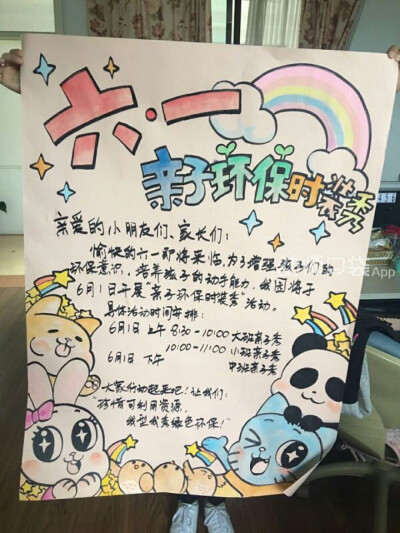 六·一
亲子环保时装秀
亲爱的小朋友们、家长们:
愉快的六一即将来临,为了增强孩子们的
环保意识,培养孩子的动手能力,我园将于
6月1日开展"亲子环保时装秀"活动。
具体活动时间安排:
6月1日上午 8:30-10:00 大班亲子秀
10:00-11:00 小班亲子秀
6月1日 下午 中班亲子秀
大家行动起来吧!让我们:
"珍惜可利用资源,
我型我秀绿色环保!"
口袋App